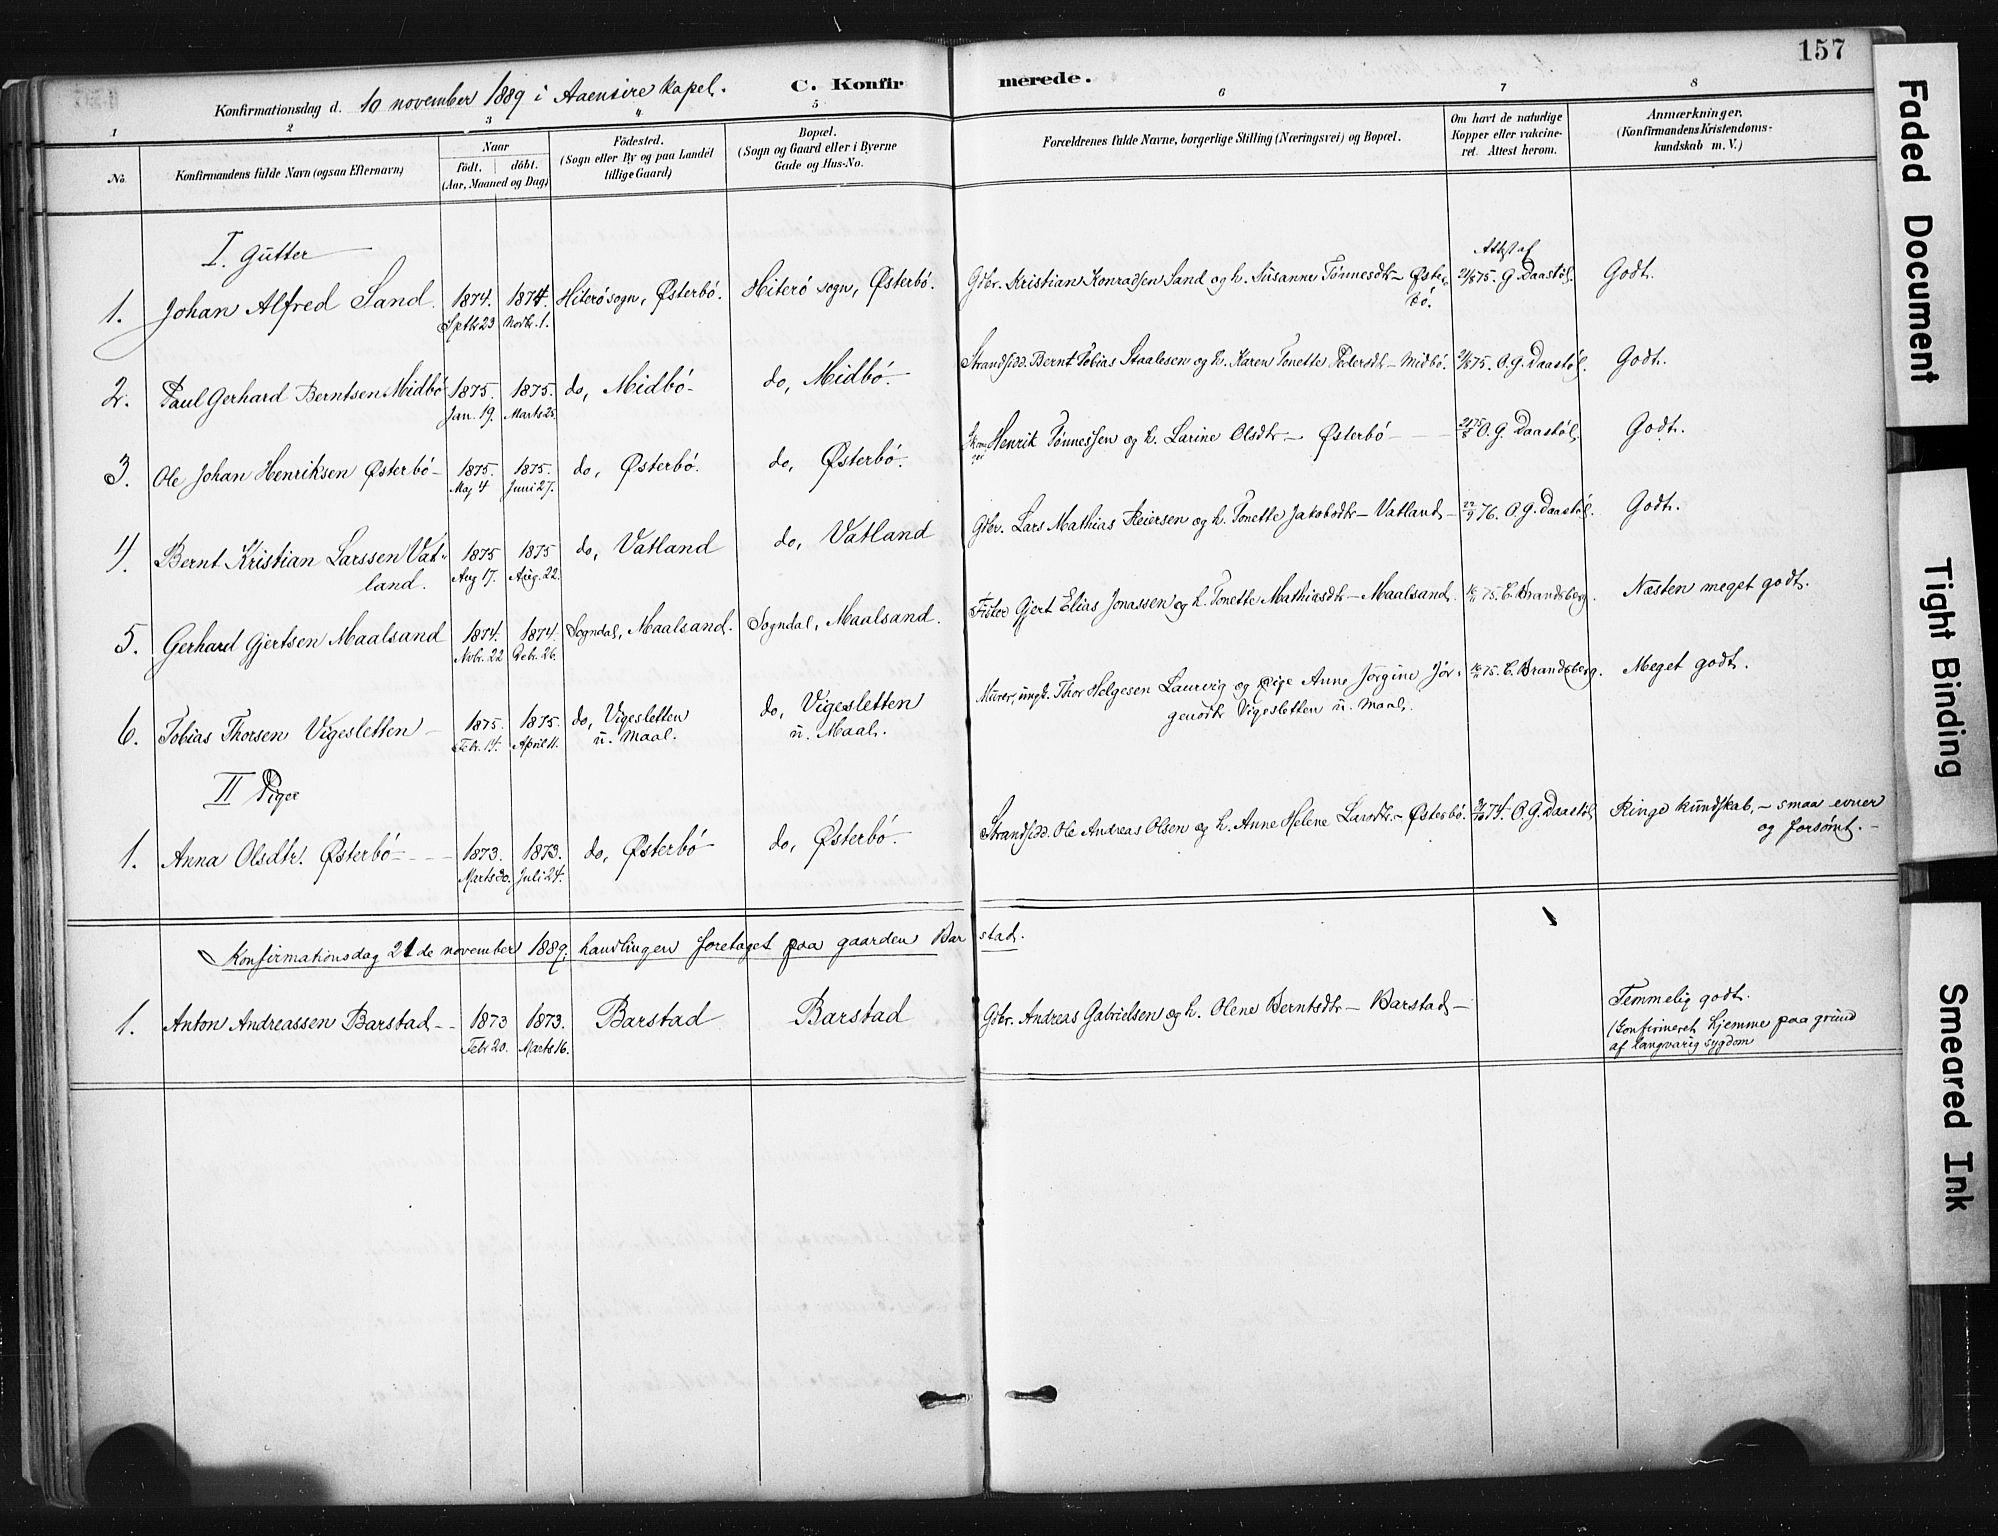 157
Konfirmationsdag d. 10 november 1889 i Aaensire kapel.
C. Konfirmerede.
1 2 3 4 5 6 7 8
No.
Konfirmandens fulde Navn (ogsaa Efternavn)
Naar
födt. döbt.
(Aar, Maaned og Dag)
Födested.
(Sogn eller By og paa Landet tillige Gaard)
Bopæl.
(Sogn og Gaard eller i Byerne Gade og Hus-No.
Forældrenes fulde Navne, borgerlige Stilling (Næringsvei) og Bopæl.
Om havt de naturlige Kopper eller vakcineret. Attest herom.
Anmærkninger.
(Konfirmandens Kristendomskundskab m. V.)
I. Gutter
1. Johan Alfred Sand. 1874. Septbr 23 1874. Novbr. 1. Hiterö sogn, Østerbö. Hiterö sogn, Østerbö. Gbr. Kristian Konradsen Sand og h. Susanne Tønnesdtr – Østerbö. Attest af 21/8 75. G. Daastöl. Godt.
2. Paul Gerhard Berntsen Midbö 1875. Jan. 19. 1875. Marts 25. do, Midbö – do, Midbö. – Strandsidd. Bernt Tobias Staalesen og h. Karen Tonette Pedersdtr – Midbö. 21/8 75. O. G. Daastöl. Godt.
3. Ole Johan Henriksen Østerbö – 1875. Maj 4 1875. Juni 27. do, Østerbö. do, Østerbö. Henrik Tønnessen og h. Larine Olsdtr – Østerbö – O. G. Daastöl. Godt.
4. Bernt Kristian Larssen Vatland. 1875 Aug 17. 1875 Aug. 22. do, Vatland do, Vatland Gbr. Lars Mathias Reiersen og h. Tonette Jakobsdtr – Vatland – 22/9 76. O. G. Daastöl. Godt.
5. Gerhard Gjertsen Maalsand 1874. Nvbr. 22 1874 Debr. 26. Sogndal, Maalsand. Sogndal, Maalsand. Fisker Gjert Elias Jonassen og h. Tonette Mathiasdtr – Maalsand. 75. C. Brandsberg. Næsten meget godt.
6. Tobias Thorsen Vigesletten – 1875. Febr. 14. 1875. April 11. do, Vigesletten u. Maal. do, Vigesletten u. Maal. Murer, ungk. Thor Helgesen Laurvig og pige Anne Jörgine Jörgensdtr Vigesletten u. Maal. 75. C. Brandsberg. Meget godt.
II Piger
1. Anna Olsdtr. Østerbö – 1873. Marts 30. 1873. Juli 24. do, Østerbö – do, Østerbö. Strandsidd. Ole Andreas Olsen og h. Anne Helene Larsdtr – Østerbö. 74. O. G. Daastöl Ringe kundskab, – smaa evner og forsømt. –
Konfirmationsdag 21de november 1889; handlingen foretaget paa gaarden Barstad.
1. Anton Andreassen Barstad – 1873 Febr 20. 1873. Marts 16. Barstad Barstad Gbr. Andreas Gabrielsen og h. Olene Berntsdtr – Barstad – Temmelig godt.
(Confirmeret hjemme paa grund af langvarig sygdom
Faded Document
Tight Binding
Smeared Ink